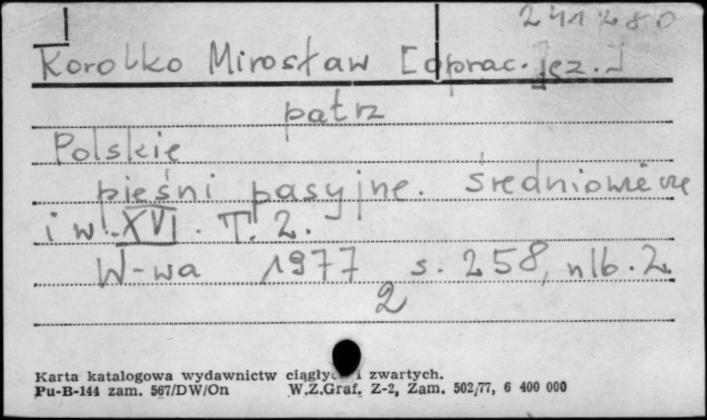 241280
Korolko Mirosław [oprac. jęz.]
patrz
Polskie
pieśni pasyjne. Średniowiecze
i w. XVI. T. 2.
W-wa 1977 s. 258, nlb. 2.
2
Karta katalogowa wydawnictw ciągłych i zwartych.
Pu-B-144 zam. 567/DW/On W.Z.Graf. Z-2, Zam. 502/77, 6 400 000